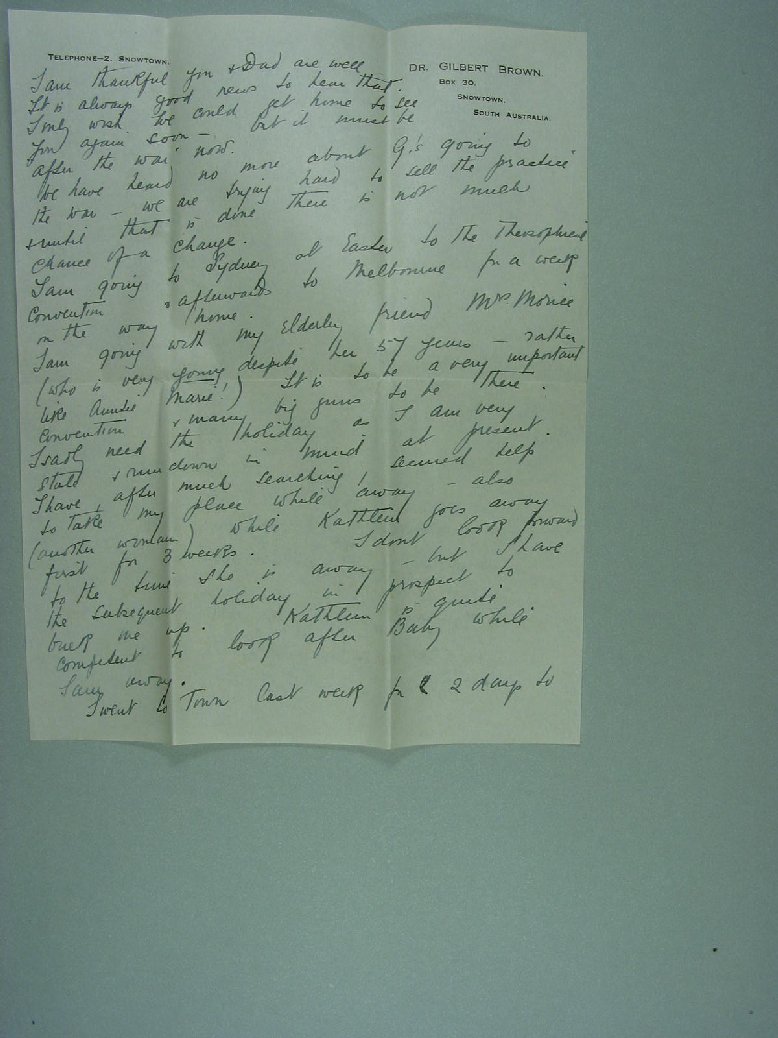 TELEPHONE—2. SNOWTOWN.
DR. GILBERT BROWN.
BOX 30,
SNOWTOWN,
SOUTH AUSTRALIA.
I am thankful you & Dad are well
It is always good news to hear that.
I only wish we could get home to see
you again soon – but it must be
after the war now.
We have heard no more about G's going to
the war – we are trying hard to sell the practice
& until that is done there is not much
chance of a change.
I am going to Sydney at Easter to the Theosophical
Convention & afterwards to Melbourne for a week
on the way home.
I am going with my Elderly friend Mrs Morice
(who is very young despite her 57 years – rather
like Auntie Marie!) It is to be a very important
Convention & many big guns to be there.
I sadly need the holiday as I am very
stale & rundown in mind at present.
I have, after much searching, secured help
to take my place while away – also
(another woman) while Kathleen goes away
first for 3 weeks. I dont look forward
to the time she is away – but I have
the subsequent holiday in prospect to
buck me up. Kathleen is quite
competent to look after Baby while
I am away.
I went to Town last week for 2 days to